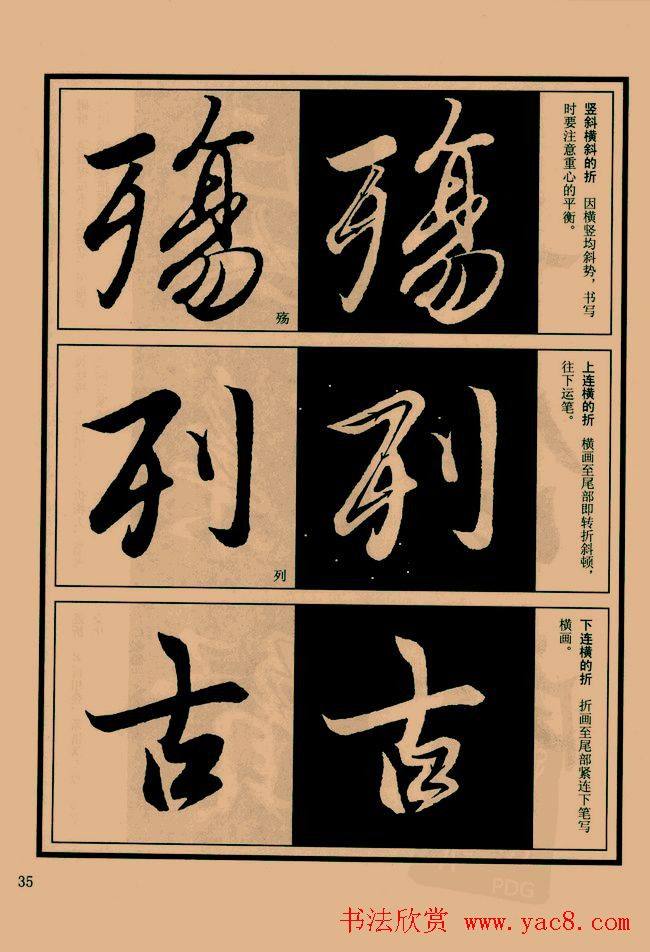 殇
殇
殇
竖斜横斜的折 因横竖均斜势，书写
时要注意重心的平衡。
列
列
列
上连横的折 横画至尾部即转折斜顿，
往下运笔。
古
古
下连横的折 折画至尾部紧连下笔写
横画。
35
PDG
书法欣赏 www.yac8.com